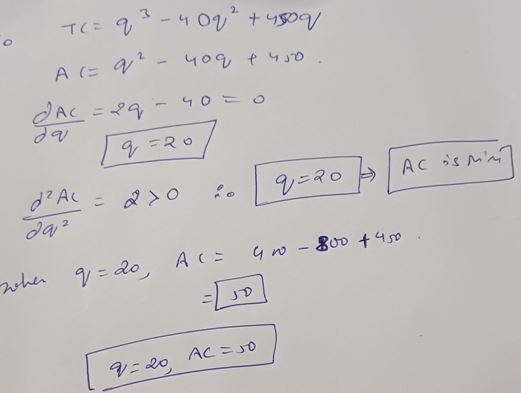 TC = q³ - 40q² + 450q
AC = q² - 40q + 450.
dAC/dq = 2q - 40 = 0
q = 20
d²AC/dq² = 2 > 0 ∴ q = 20 ⇒ AC is min
when q = 20, AC = 400 - 800 + 450.
= 50
q = 20, AC = 50